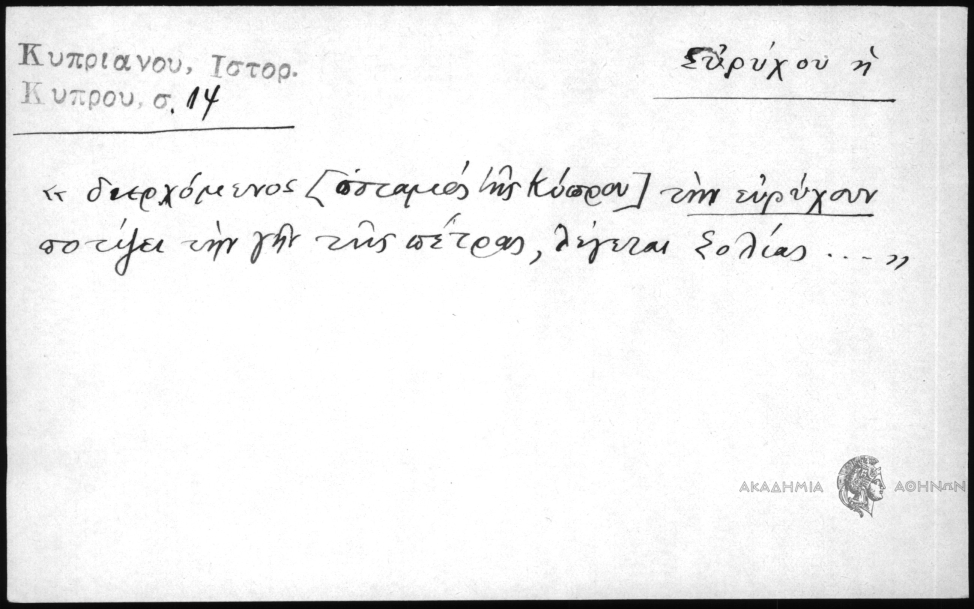 Κυπριανου, Ιστορ.
Κυπρου, σ. 14
Εὐρύχου ἡ
« διερχόμενος [ὁ ποταμὸς τῆς Κύπρου] τὴν εὐρύχουν
ποτίζει τὴν γῆν τῆς πέτρας, λέγεται Σολίας ... »
ΑΚΑΔΗΜΙΑ ΑΘΗΝΩΝ